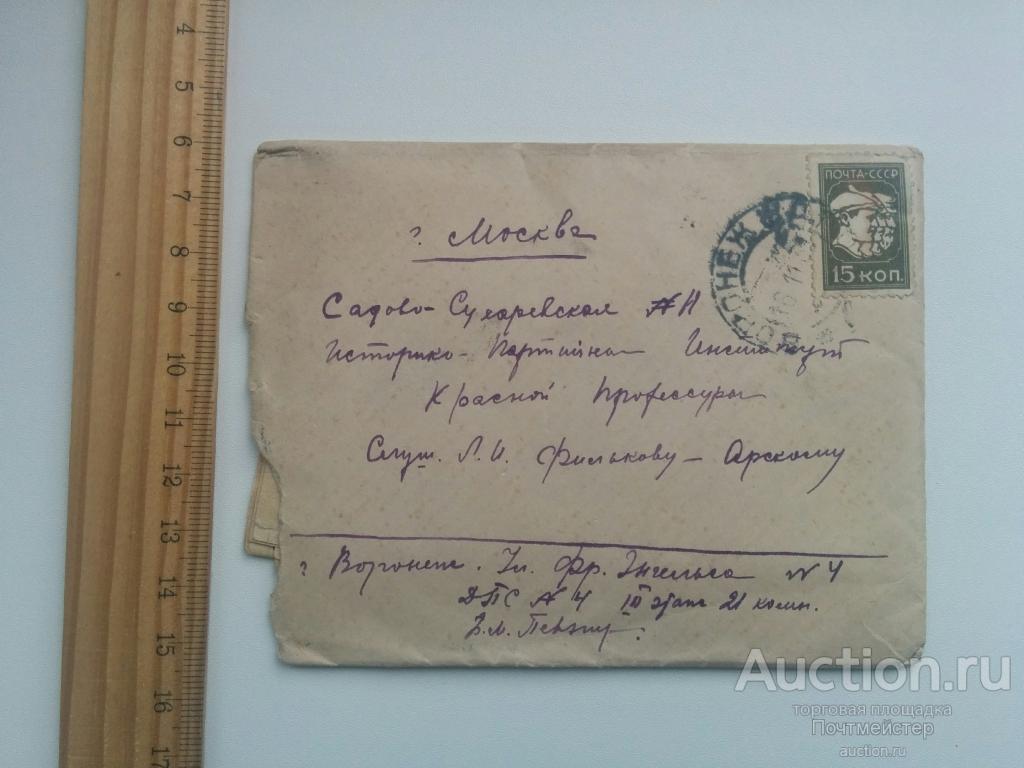 4
5
6
7
8
9
10
11
12
13
14
15
16
17
ПОЧТА-СССР
15 КОП.
г. Москва
Садово-Сухаревская
Историко-Партийный Институт
Красной Профессуры
Слуш. Л.И. Филькову-Арскому
г. Воронеж. Ул. Фр. Энгельса N 4
ДПС N 4 III этаж 21 комн.
Auction.ru
торговая площадка
Почтмейстер
auction.ru